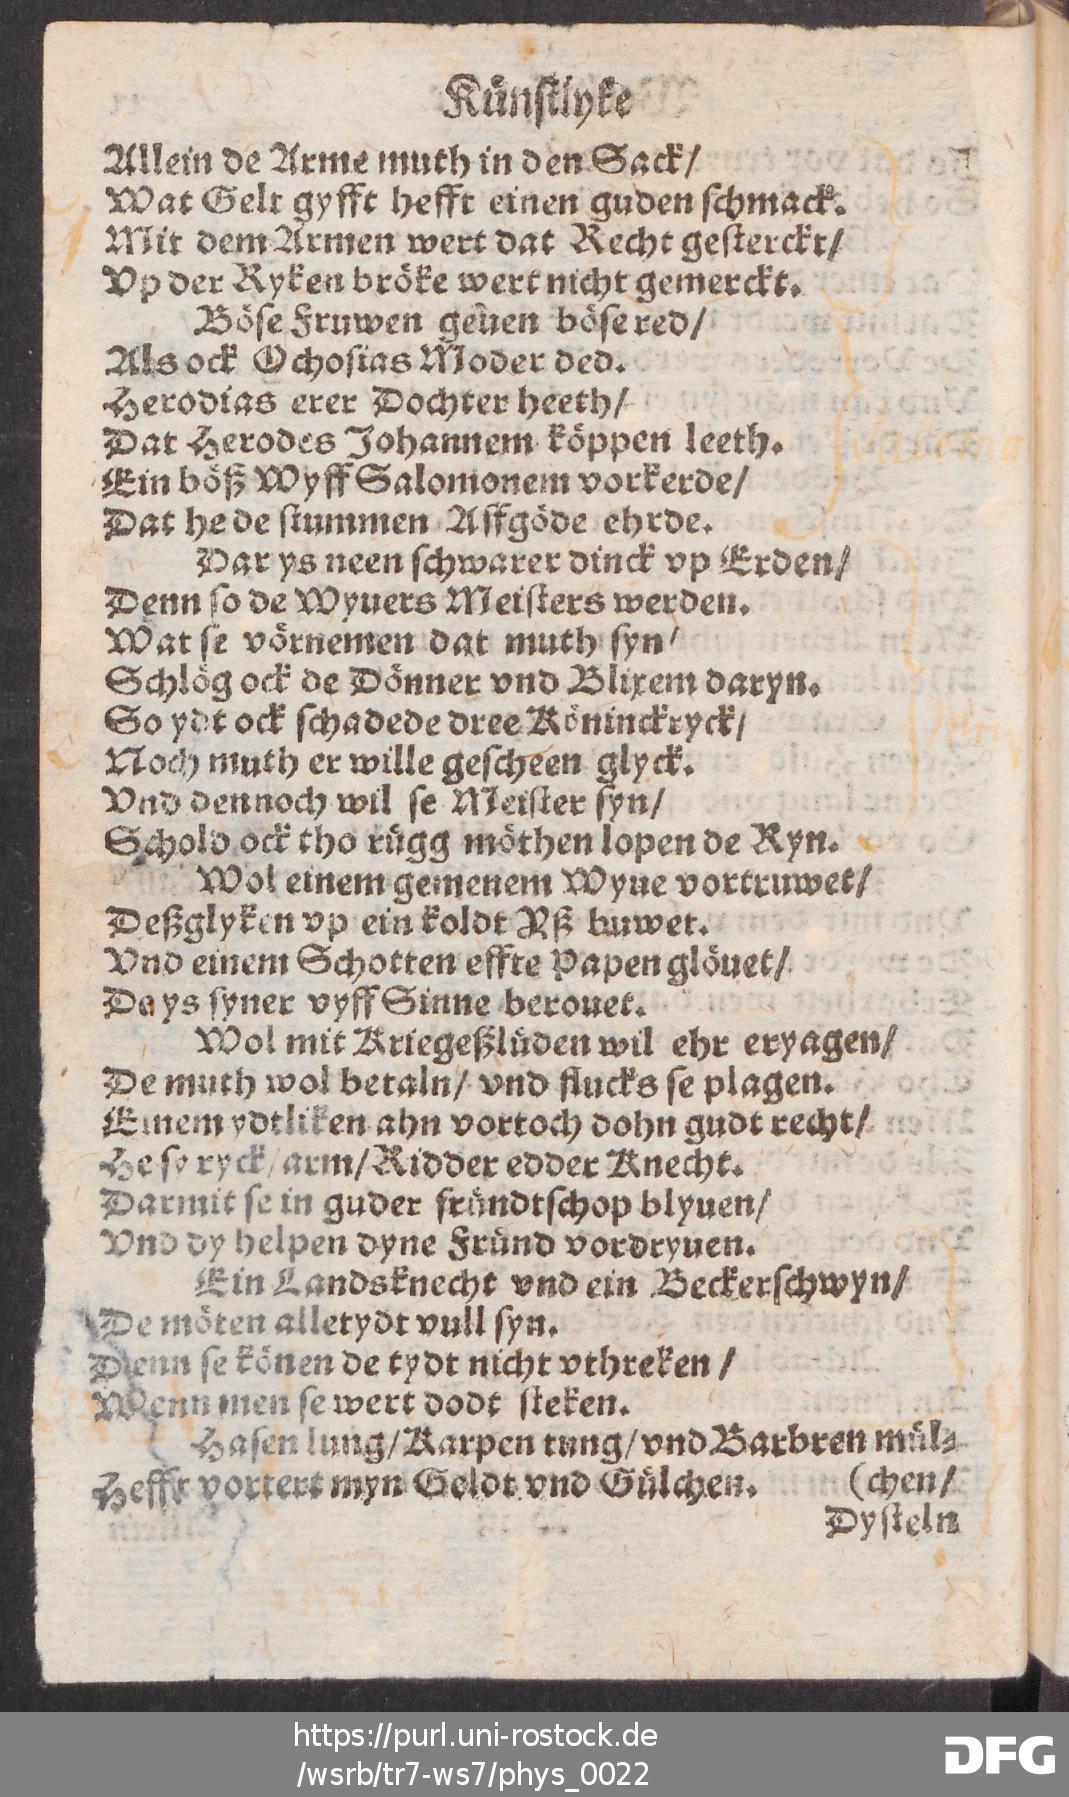 Künstlyke
Allein de Arme muth in den Sack/
Wat Gelt gyfft hefft einen guden schmack.
Mit dem Armen wert dat Recht gesterckt/
Vp der Ryken bröke wert nicht gemerckt.
Böse Fruwen geuen böse red/
Als ock Ochosias Moder ded.
Herodias erer Dochter heeth/
Dat Herodes Johannem köppen leeth.
Ein böß Wyff Salomonem vorkerde/
Dat he de stummen Affgöde ehrde.
Dar ys neen schwarer dinck vp Erden/
Denn so de Wyuers Meisters werden.
Wat se vörnemen dat muth syn/
Schlög ock de Dönner vnd Blixem daryn.
So ydt ock schadede dree Köninckryck/
Noch muth er wille gescheen glyck.
Vnd dennoch wil se Meister syn/
Schold ock tho rügg möthen lopen de Ryn.
Wol einem gemenem Wyue vortruwet/
Deßglyken vp ein koldt Yß buwet.
Vnd einem Schotten effte Papen glöuet/
Da ys syner vyff Sinne berouet.
Wol mit Kriegeßlüden wil ehr eryagen/
De muth wol betaln/ vnd flucks se plagen.
Einem ydtliken ahn vortoch dohn gudt recht/
He sy ryck/ arm/ Ridder edder Knecht.
Darmit se in guder fründtschop blyuen/
Vnd dy helpen dyne Fründ vordryuen.
Ein Landsknecht vnd ein Beckerschwyn/
De möten alletydt vull syn.
Denn se könen de tydt nicht vthreken/
Wenn men se wert dodt steken.
Hasen lung/ Karpen tung/ vnd Barbren mül⸗
Hefft vortert myn Geldt vnd Gülchen. (chen/
Dysteln
https://purl.uni-rostock.de
/wsrb/tr7-ws7/phys_0022
DFG